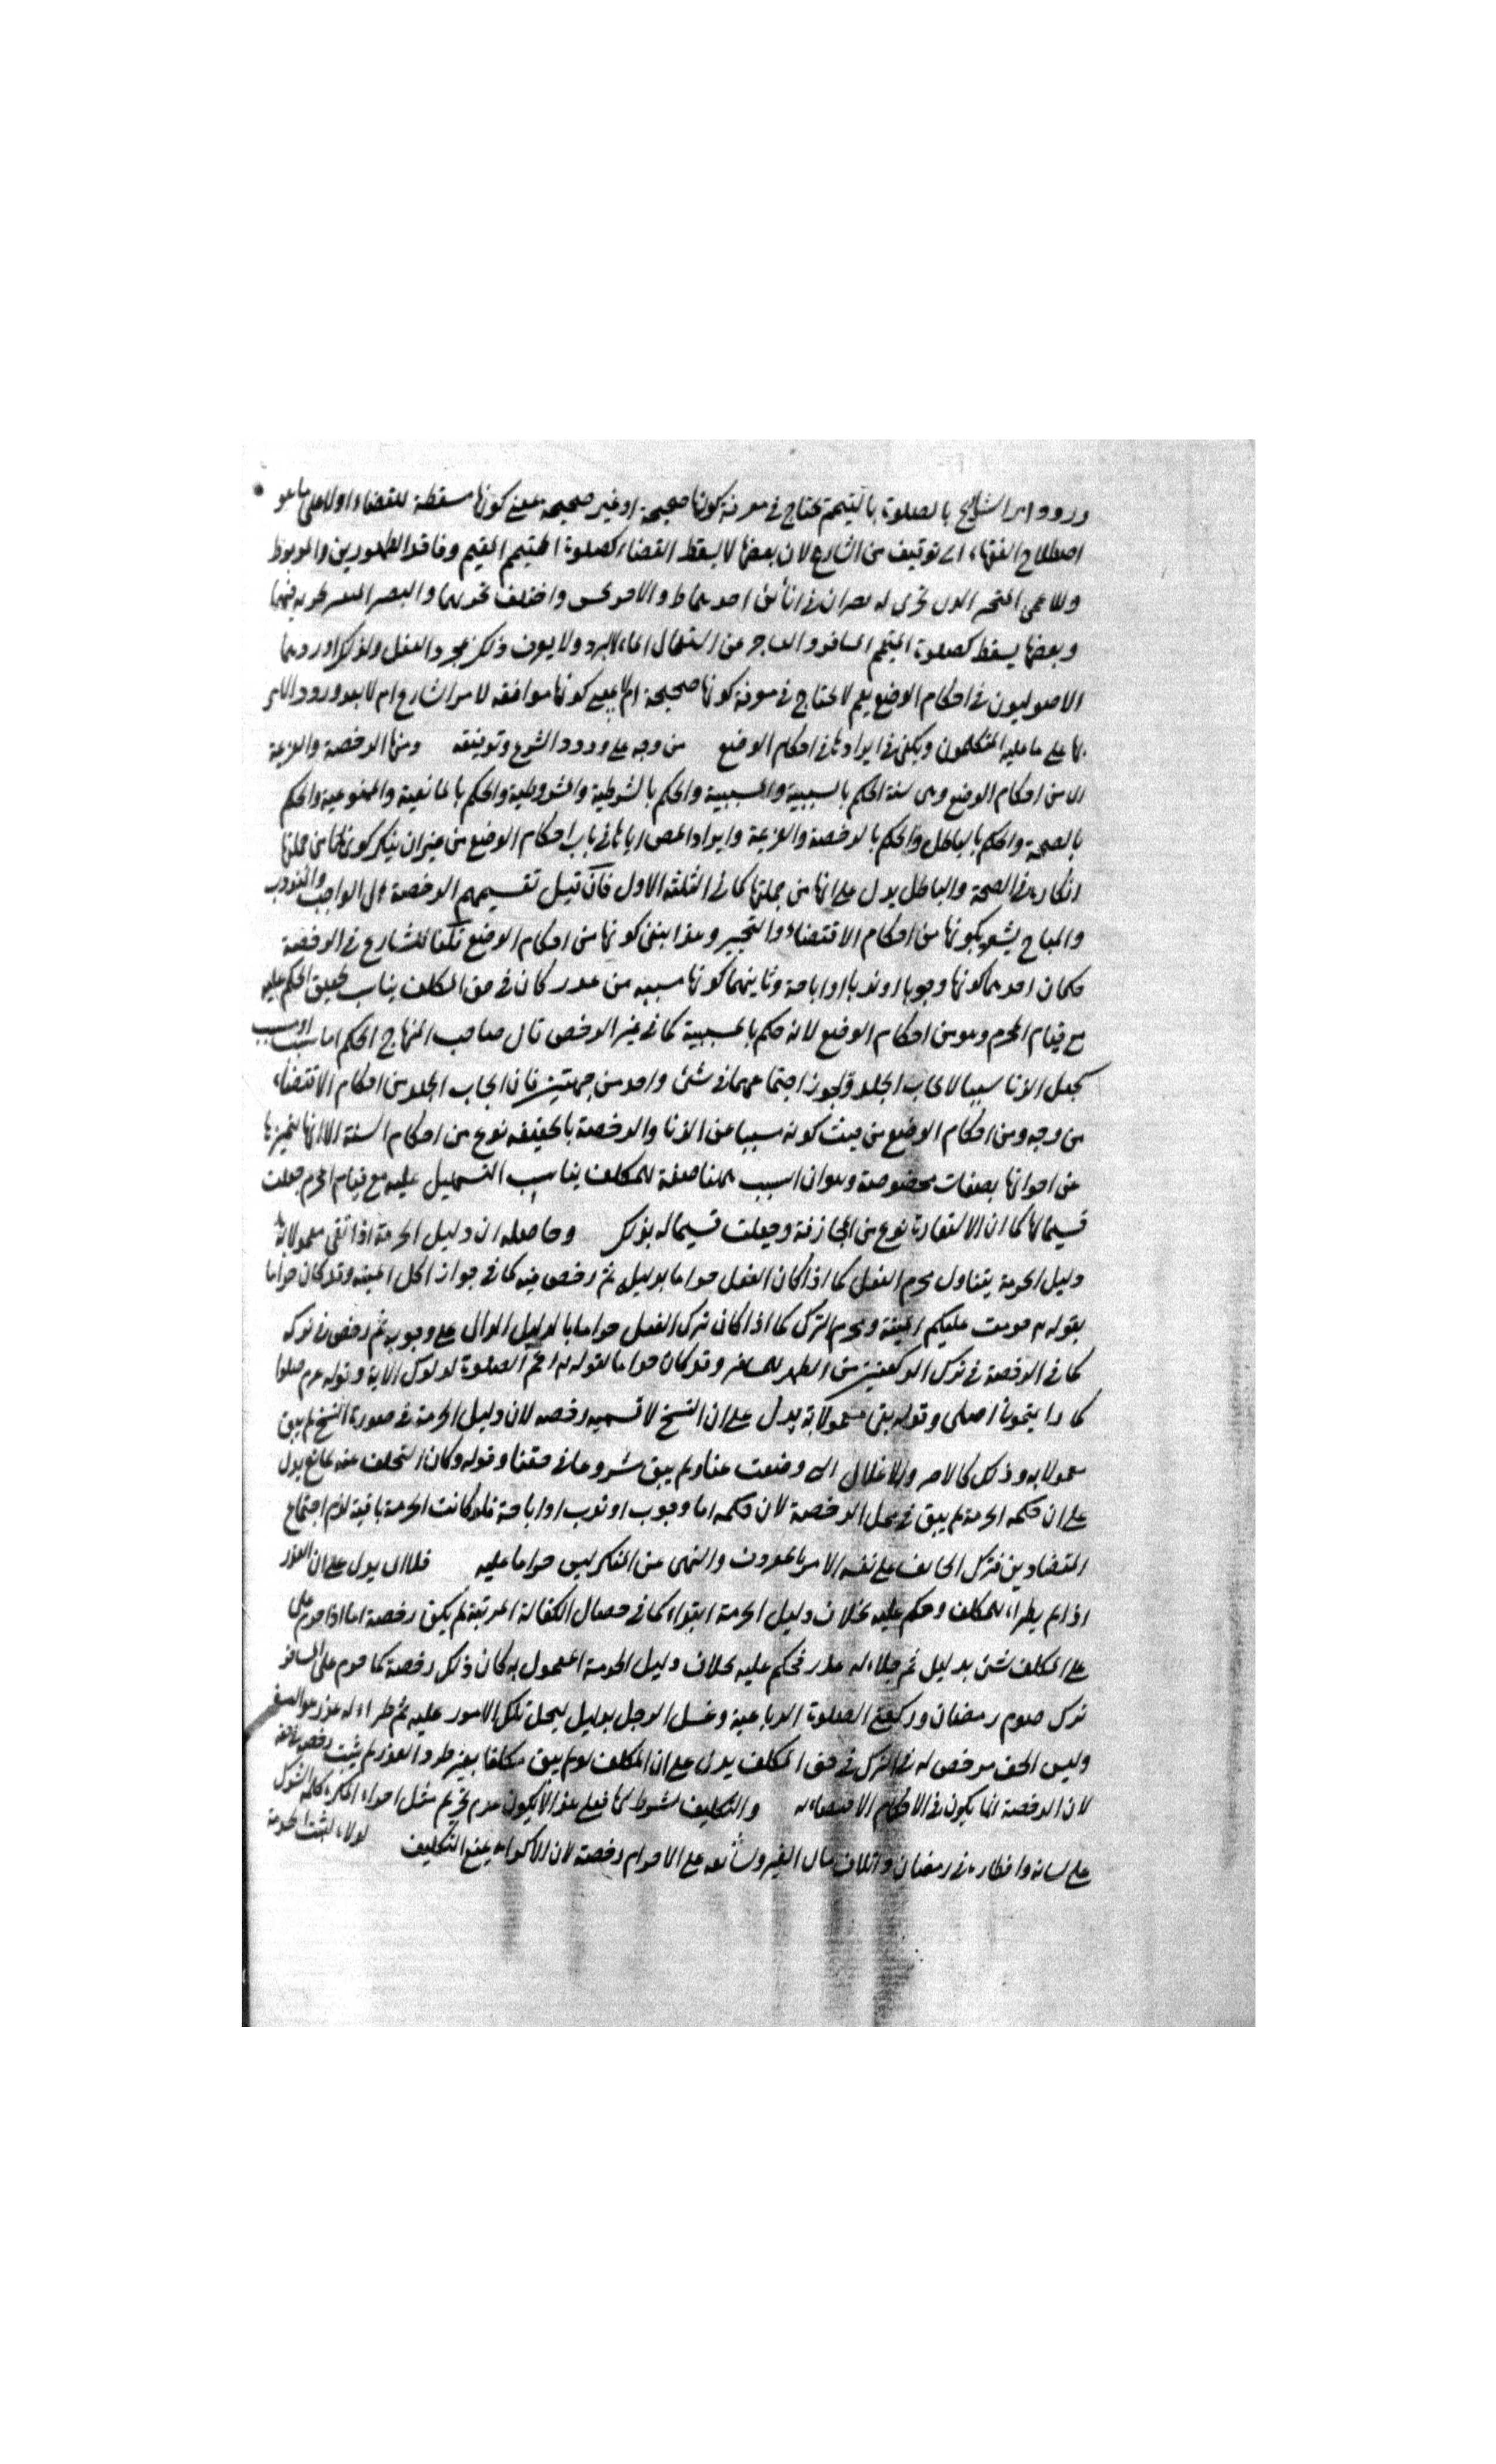 ورود امر الشارع بالصلوة بالتيمم يحتاج في معرفة كونها صحيحة او غير صحيحة بمعنى كونها مسقطة للقضاء اولا على ما هو
اصطلاح الفقهاء الى توقيف من الشارع لان بعضها لا يسقط القضاء كصلوة المتيمم المقيم وفاقد الطهورين والمربوط
وبعضها يسقط كصلوة المتيمم المسافر والعاجز عن استعمال الماء للبرد ولا يعرف ذلك بمجرد العقل ولذلك اوردهما
الاصوليون في احكام الوضع نعم لا يحتاج في معرفة كونها صحيحة ام لا بمعنى كونها موافقة لامر الشارع ام لا بعد ورود الامر
بها على ما عليه المتكلمون ويكفي في ايرادها في احكام الوضع من وجه على ورود الشرع وتوقيفه ومنها الرخصة والعزيمة
اى من احكام الوضع وهي ستة الحكم بالسببية والمسببية والحكم بالشرطية والمشروطية والحكم بالمانعية والممنوعية والحكم
بالصحة والحكم بالباطل والحكم بالرخصة والعزيمة وايراد المص اياها في باب احكام الوضع من غير ان ينكر كونها من جملتها
انكاره في الصحة والباطل يدل على انها من جملتها كما في الثلثة الاول فان قيل تقسيمهم الرخصة الى الواجب والمندوب
والمباح يشعر بكونها من احكام الاقتضاء والتخيير وهذا ينفى كونها من احكام الوضع قلنا للشارع في الرخصة
حكمان احدهما كونها وجوبا او ندبا او اباحة وثانيهما كونها مسببة من عذر كان في حق المكلف يناسب تخفيف الحكم عليه
مع قيام المحرم وهو من احكام الوضع لانه حكم بالمسببية كما في غير الرخص قال صاحب المنهاج الحكم اما سبب او مسبب
كجعل الزنا سببا لايجاب الجلد ويجوز اجتماعهما في شئ واحد من جهتين فان ايجاب الجلد من احكام الاقتضاء
من وجه ومن احكام الوضع من حيث كونه مسببا عن الزنا والرخصة بالحقيقة نوع من احكام الستة الا انها لتميزها
عن اخواتها بصفات مخصوصة وهو ان السبب ههنا صفة للمكلف يناسب التسهيل عليه مع قيام المحرم جعلت
قسيما لها كما ان الاستعارة نوع من المجاز وجعلت قسيما له بذلك وحاصله ان دليل الحرمة اذا بقى معمولا به
دليل الحرمة يتناول محرم الفعل كما اذا كان الفعل حراما بدليل ثم رخص فيه كما في جواز اكل الميتة وقد كان حراما
بقوله تع حرمت عليكم الميتة ومحرم الترك كما اذا كان ترك الفعل حراما بالدليل الدال على وجوبه ثم رخص في تركه
كما في الرخصة في ترك الركعتين من الظهر للمسافر وقد كان حراما لقوله تع اقم الصلوة لدلوك الاية وقوله عم صلوا
كما رايتموني اصلى وقوله بقى معمولا به يدل على ان النسخ لا نسميه رخصة لان دليل الحرمة في صورة النسخ لم يبق
معمولا به وذلك كالاصر والاغلال التي وضعت عنا ولم يبق مشروعا في حقنا وقوله وكان التخلف عنه لمانع يدل
على ان حكمه الحرمة لم يبق في محل الرخصة لان حكمه اما وجوب او ندب او اباحة فلو كانت الحرمة باقية لزم اجتماع
المتضادين فترك الخائف على نفسه الامر بالمعروف والنهى عن المنكر ليس حراما عليه يدل على ان العذر
اذا لم يطرأ للمكلف وحكم عليه بخلاف دليل الحرمة ابتداء كما في خصال الكفارة المرتبة لم يكن رخصة اما اذا حرم على
على المكلف شئ بدليل ثم طراء له عذر فحكم عليه بخلاف دليل الحرمة المعمول به كان ذلك رخصة كما حرم على المسافر
ترك صوم رمضان وركعتي الصلوة الرباعية وغسل الرجل بدليل تلك الامور عليه ثم طراء له عذر هو السفر
وليس الخف مرخص له في الترك في حق المكلف يدل على ان المكلف لو لم يبق مكلفا بغير طرو العذر لم يثبت رخص في حقه
لان الرخصة انما يكون في الاحكام والتكليف شرط لها فعلى هذا لا يكون عدم تحريم مثل اجراء المكره كلمة الشرك
على لسانه وافطاره في رمضان واتلاف مال الغير على الاحرام رخصة لان الاكراه يمنع التكليف لولاه لثبت الحرمة